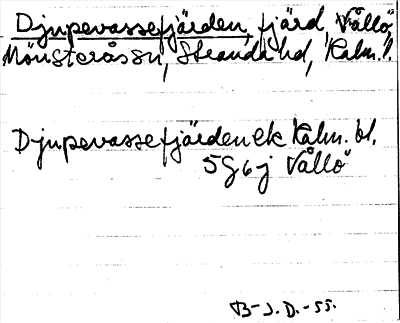 Djupevassefjärden, fjärd, Vållö,
Mönsterås sn, Stranda hd, Kalm. l.
Djupevassefjärden ek Kalm. bl.
5 G 6 j Vållö
B-J.D.-55.